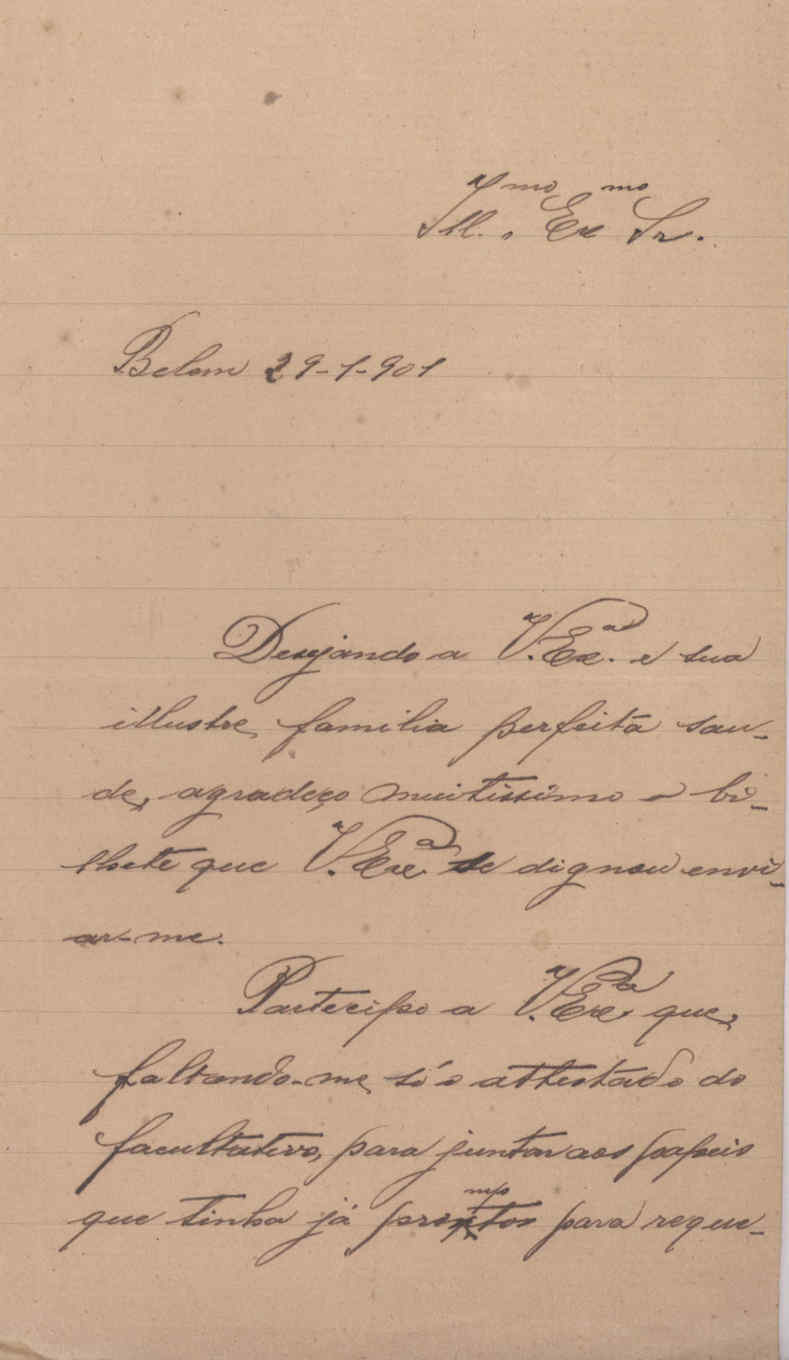 Ill.mo Exmo Sr.
Belem 29-1-901
Desejando a V. Ex.a e sua
illustre familia perfeita sau-
de, agradeço muitissimo o bi-
lhete que V. Ex.a se dignou envi-
ar-me.
Partecipo a V. Ex.a que,
faltando-me só o attestado do
facultativo, para juntar aos papeis
que tinha já promptos para reque-